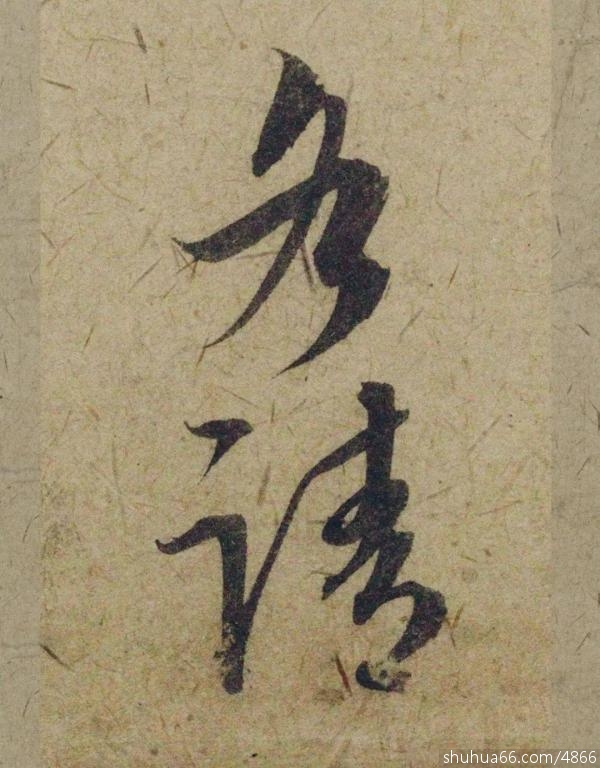 多
請
shuhua66.com/4866